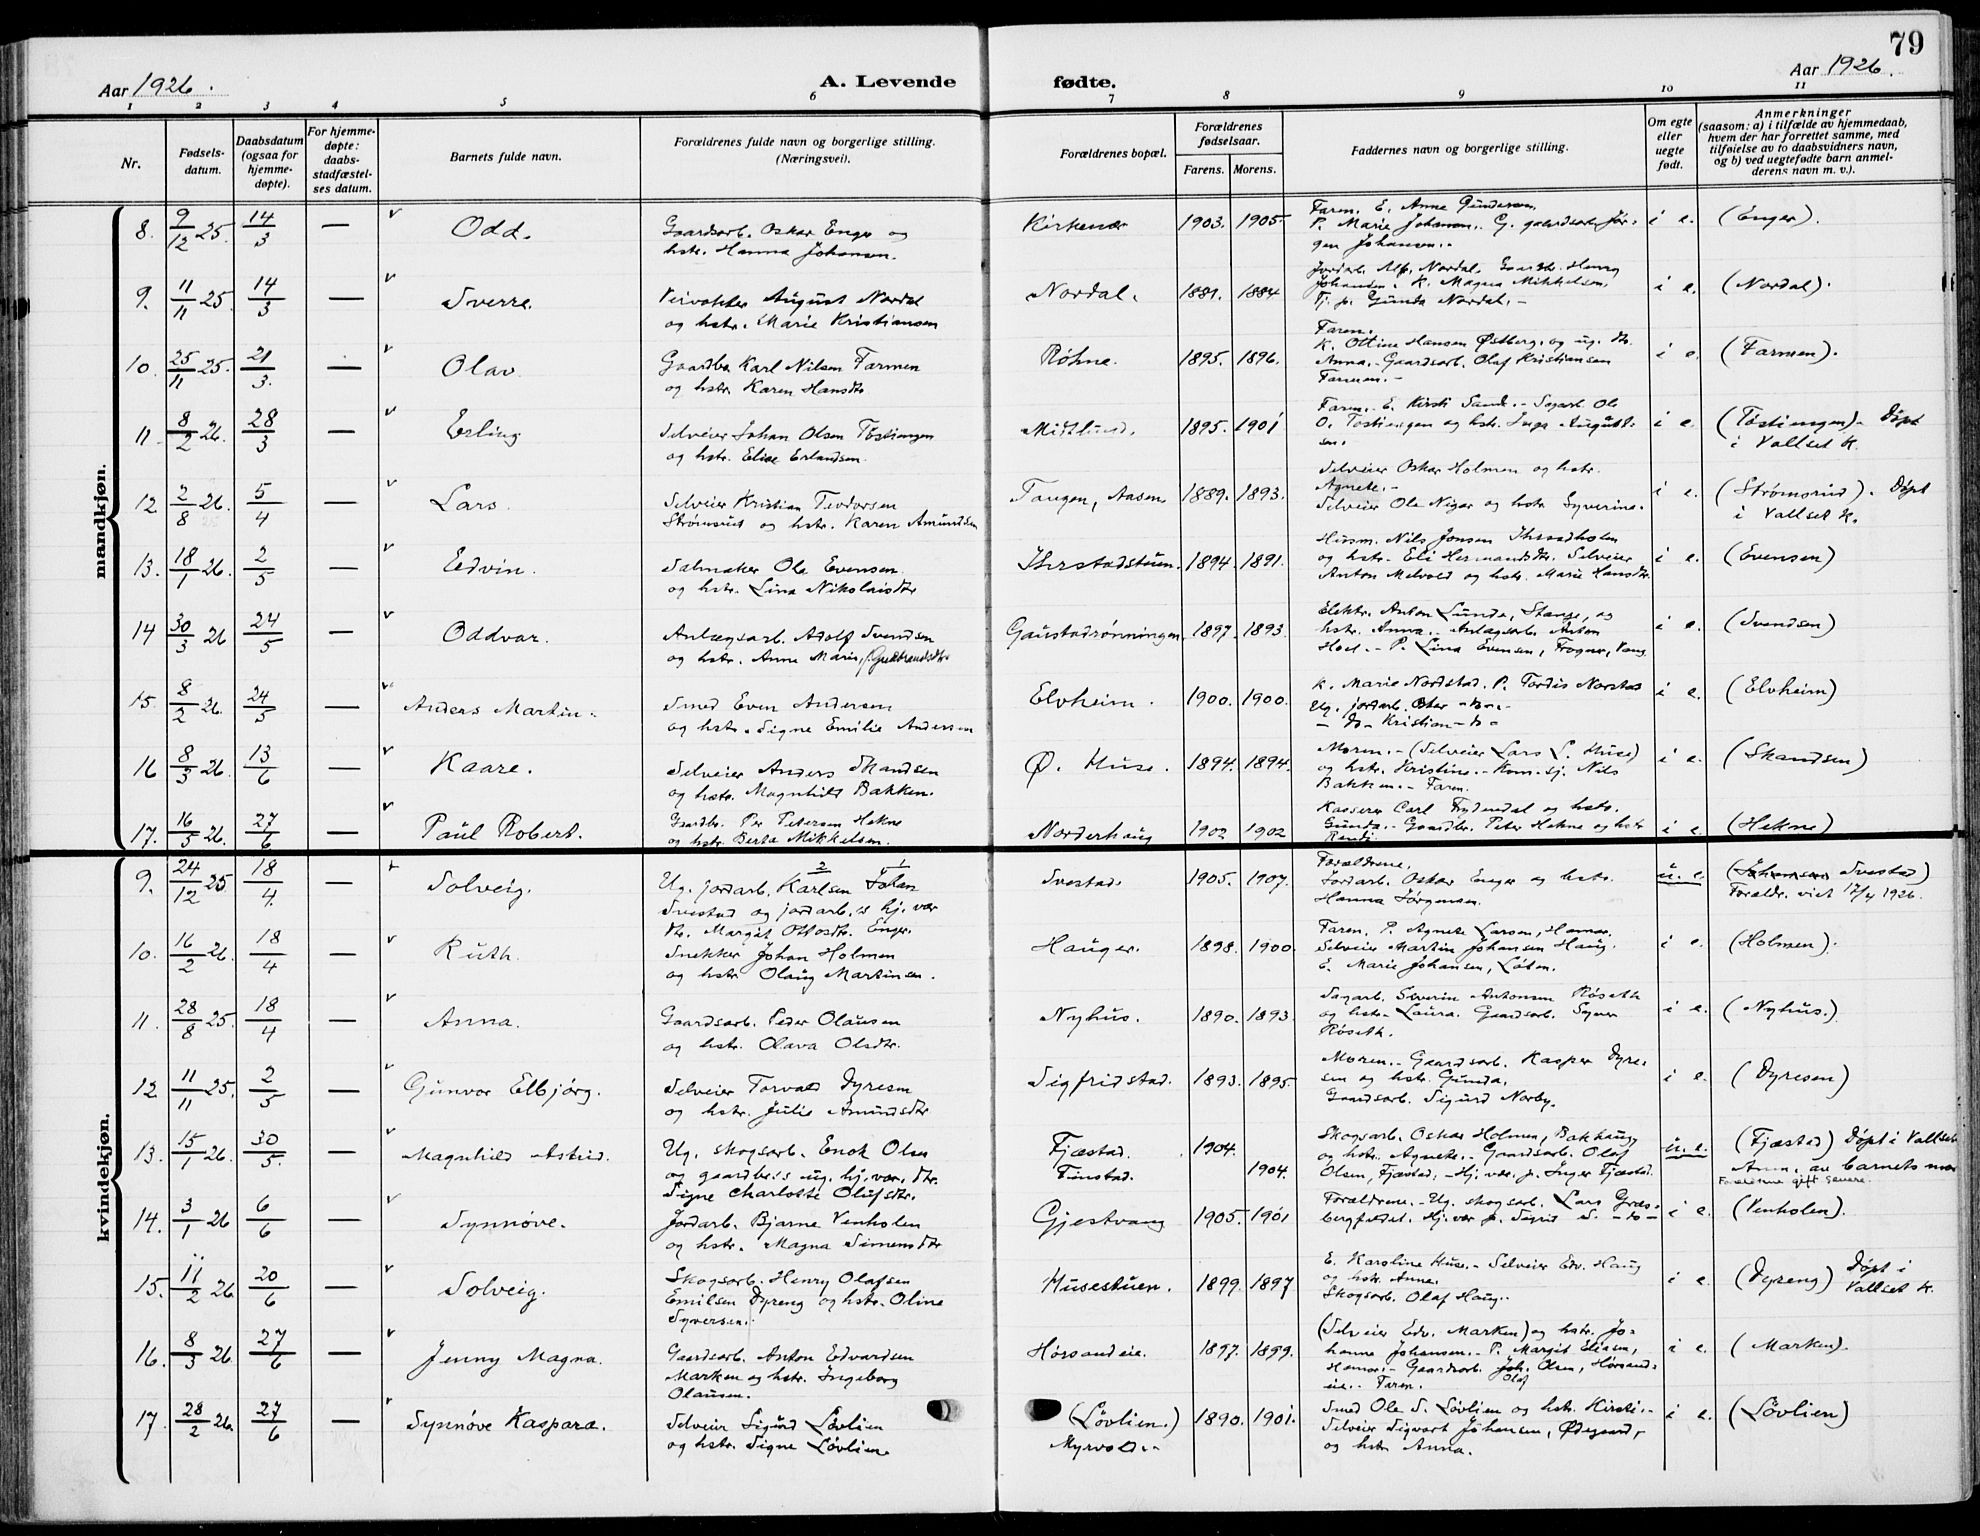 79
Aar 1926.
A. Levende fødte.
Aar 1926.
1 2 3 4 5 6 7 8 9 10 11
Nr.
Fødsels-
datum.
Daabsdatum
(ogsaa for
hjemme-
døpte).
For hjemme-
døpte:
daabs-
stadfæstel-
ses datum.
Barnets fulde navn.
Forældrenes fulde navn og borgerlige stilling.
(Næringsvei).
Forældrenes bopæl.
Forældrenes
fødselsaar.
Farens. Morens.
Faddernes navn og borgerlige stilling.
Om egte
eller
uegte
født.
Anmerkninger
(saasom: a) i tilfælde av hjemmedaab,
hvem der har forrettet samme, med
tilføielse av to daabsvidners navn,
og b) ved uegtefødte barn anmel-
derens navn m. v.).
mandkjøn.
8. 9/12 25. 14/3 — Odd. Gaardsarb. Oskar Enger og
hstr. Hanna Johansen.
Kirkenær 1903. 1905.
Faren. E. Anne Gundersen.
P. Marie Johansen. G. gaardsarb. Jør-
gen Johansen.
i e. (Enger).
9. 11/11 25. 14/3 — Sverre. August Nordal
og hstr. Marie Kristiansen
Nordal. 1881. 1884
Jordarb. Alf. Nordal. Henry
Johansen. K. Magna Mikkelsen.
Tj. p. Gunda Nordal.
i e. (Nordal).
10. 25/11 25. 21/3. — Olav. Gaardbr. Karl Nilsen Farmen
og hstr. Karen Hansdtr.
Røhne. 1895. 1896.
Faren.
K. Ottine Hansen Østberg. og ug. dtr.
Anna. Gaardsarb. Olaf Kristiansen
Farmen.
i e. (Farmen).
11. 8/2 26. 28/3 — Erling Selveier Johan Olsen Tostiengen
og hstr. Elise Erlandsen.
Midtlund. 1895. 1901
Faren. E. Kirsti Sande. Sagarb. Ole
O. Tostiengen og hstr. Inga August-
sen.
i e. (Tostiengen). Døpt
i Vallset K.
12 2/8 26. 5/4 — Lars. Selveier Kristian Teodorsen
Strømsrud og hstr. Karen Amundsen
Tangen, Aasen 1889. 1893.
Selveier Oskar Holmen og hstr.
Agnete.
Selveier Ole Nigar og hstr. Syverine.
i e. (Strømsrud). Døpt
i Vallset K.
13. 18/1 26. 2/5 — Edvin. Salmaker Ole Evensen
og hstr. Lina Nikolaisdtr.
Ihrstadstuen. 1894. 1891.
Husm. Nils Jonsen Ihrsadholen
og hstr. Eli Hermandsdtr. Selveier
Anton Melvold og hstr. Marie Hansdtr.
i e. (Evensen)
14 30/3 26 24/5 — Oddvar. Anlægsarb. Adolf Svendsen
og hstr. Anne Marie Gulbrandsdtr.
Gaustadrønningen. 1897. 1893.
Elektr. Anton Lunde, Stange, og
hstr. Anna. Anlægsarb. Anton
Hoel. P. Lina Evensen, Frogner, Vang
i e. (Svendsen)
15. 8/2 26. 24/5 — Anders Martin. Smed Even Andersen
og hstr. Signe Emilie Andersen
Elvheim. 1900. 1900.
K. Marie Nordstad. P. Tordis Norstad
Ug. jordarb. Oskar -do-.
-do- Kristian -do-
i e. (Elvheim)
16 8/3 26. 13/6 — Kaare. Selveier Anders Skandsen
og hstr. Magnhild Bakken.
Ø. Huse. 1894. 1894.
Moren. (Selveier Lars L. Huse)
og hstr. Kristine. Kom.sj. Nils
Bakken. Faren.
i e. (Skandsen)
17. 16/5 26. 27/6 — Paul Robert. Gaardbr. Per Petersen Hekne
og hstr. Berta Mikkelsen.
Norderhaug 1902 1902
Kasserer Carl Frydendal og hstr.
Gunda. Gaardbr. Peter Hekne og hstr.
Randi.
i e. (Hekne)
kvindekjøn.
9. 24/12 25. 18/4. — Solveig. Ug. jordarb. Karlsen Johan
Svestad og jordarb.s hj. vær
dtr. Margit Ottosdtr. Enger.
Svestad. 1905. 1907.
Forældrene.
Jordarb. Oskar Enger og hstr.
Hanna Jørgensen.
u. e. (Johansen Svestad)
Forældr. viet 17/4 1926.
10. 16/2 26. 18/4 — Ruth. Snekker Johan Holmen
og hstr Olaug Martinsen.
Hauger. 1898. 1900.
Faren. P. Agnete Larsen, Hamar.
Selveier Martin Johansen Haug.
E. Marie Johansen, Løten.
i e. (Holmen).
11. 28/8 25. 18/4 — Anna. Gaardsarb. Peder Olausen
og hstr. Olava Olsdtr.
Nyhus. 1890. 1893.
Sagarb. Severin Antonsen Røseth
og hstr. Laura. Gaardsarb. Syver
Røseth.
i e. (Nyhus.)
12 11/11 25. 2/5 — Gunvor Elbjørg. Selveier Torvald Dyresen
og hstr. Julie Amundsdtr
Sigfridstad. 1893. 1895.
Moren. Gaardsarb. Kasper Dyre-
sen og hstr. Gunda.
Gaardsarb. Sigurd Norby.
i e. (Dyresen)
13. 15/1 26. 30/5. — Magnhild Astrid. Ug. skogsarb. Enok Olsen
og gaardbr.s ug. hj. vær. dtr.
Signe Charlotte Olufsdtr.
Fjæstad. 1904.
Finstad. 1904.
Skogsarb. Oskar Holmen, Bakhaug
og hstr. Agnete. Gaardsarb. Olaf
Olsen, Fjæstad. Hj. vær. p. Inger Fjæstad.
u. e. (Fjæstad) Døpt i Vallset
Anm. av barnets mor
Forældrene gift senere.
14. 3/1 26 6/6 — Synnøve. Jordarb. Bjarne Venholen
og hstr. Magna Simensdtr
Gjestvang 1905. 1901
Forældrene. Ug. skogsarb. Lars Græs-
bergfødal. Hj. vær p. Sigrid S. -do-
i e. (Venholen).
15. 11/2 26 20/6 — Solveig. Skogsarb. Henry Olafsen
Emilsen Dyreng og hstr. Oline
Syversen.
Husestuen. 1899. 1897
E. Karoline Huse. Selveier Edv. Haug
og hstr. Anne.
Skogsarb. Olaf Haug.
i e. (Dyreng) Døpt i
Vallset K.
16. 8/3 26. 27/6 — Jenny Magna. Gaardsarb. Anton Edvardsen
Marken og hstr. Ingeborg
Olausen.
Hørsandeie. 1897. 1899.
(Selveier Edv. Marken) og hstr. Jo-
hanne Johansen. P. Margit Eliasen,
Hamar. Gaardsarb. Joh. Olsen, Hørsand-
Olaf
eie. Faren.
i e. (Marken).
17. 28/2 26. 27/6 — Synnøve Kaspara. Selveier Sigurd Løvlien
og hstr. Signe Løvlien
(Løvlien.) 1890. 1901.
Myrvold.
Smed Ole S. Løvlien og hstr. Kirsti.
Selveier Sigvart Johansen, Ødegaard,
og hstr Anna.
i e. (Løvlien)